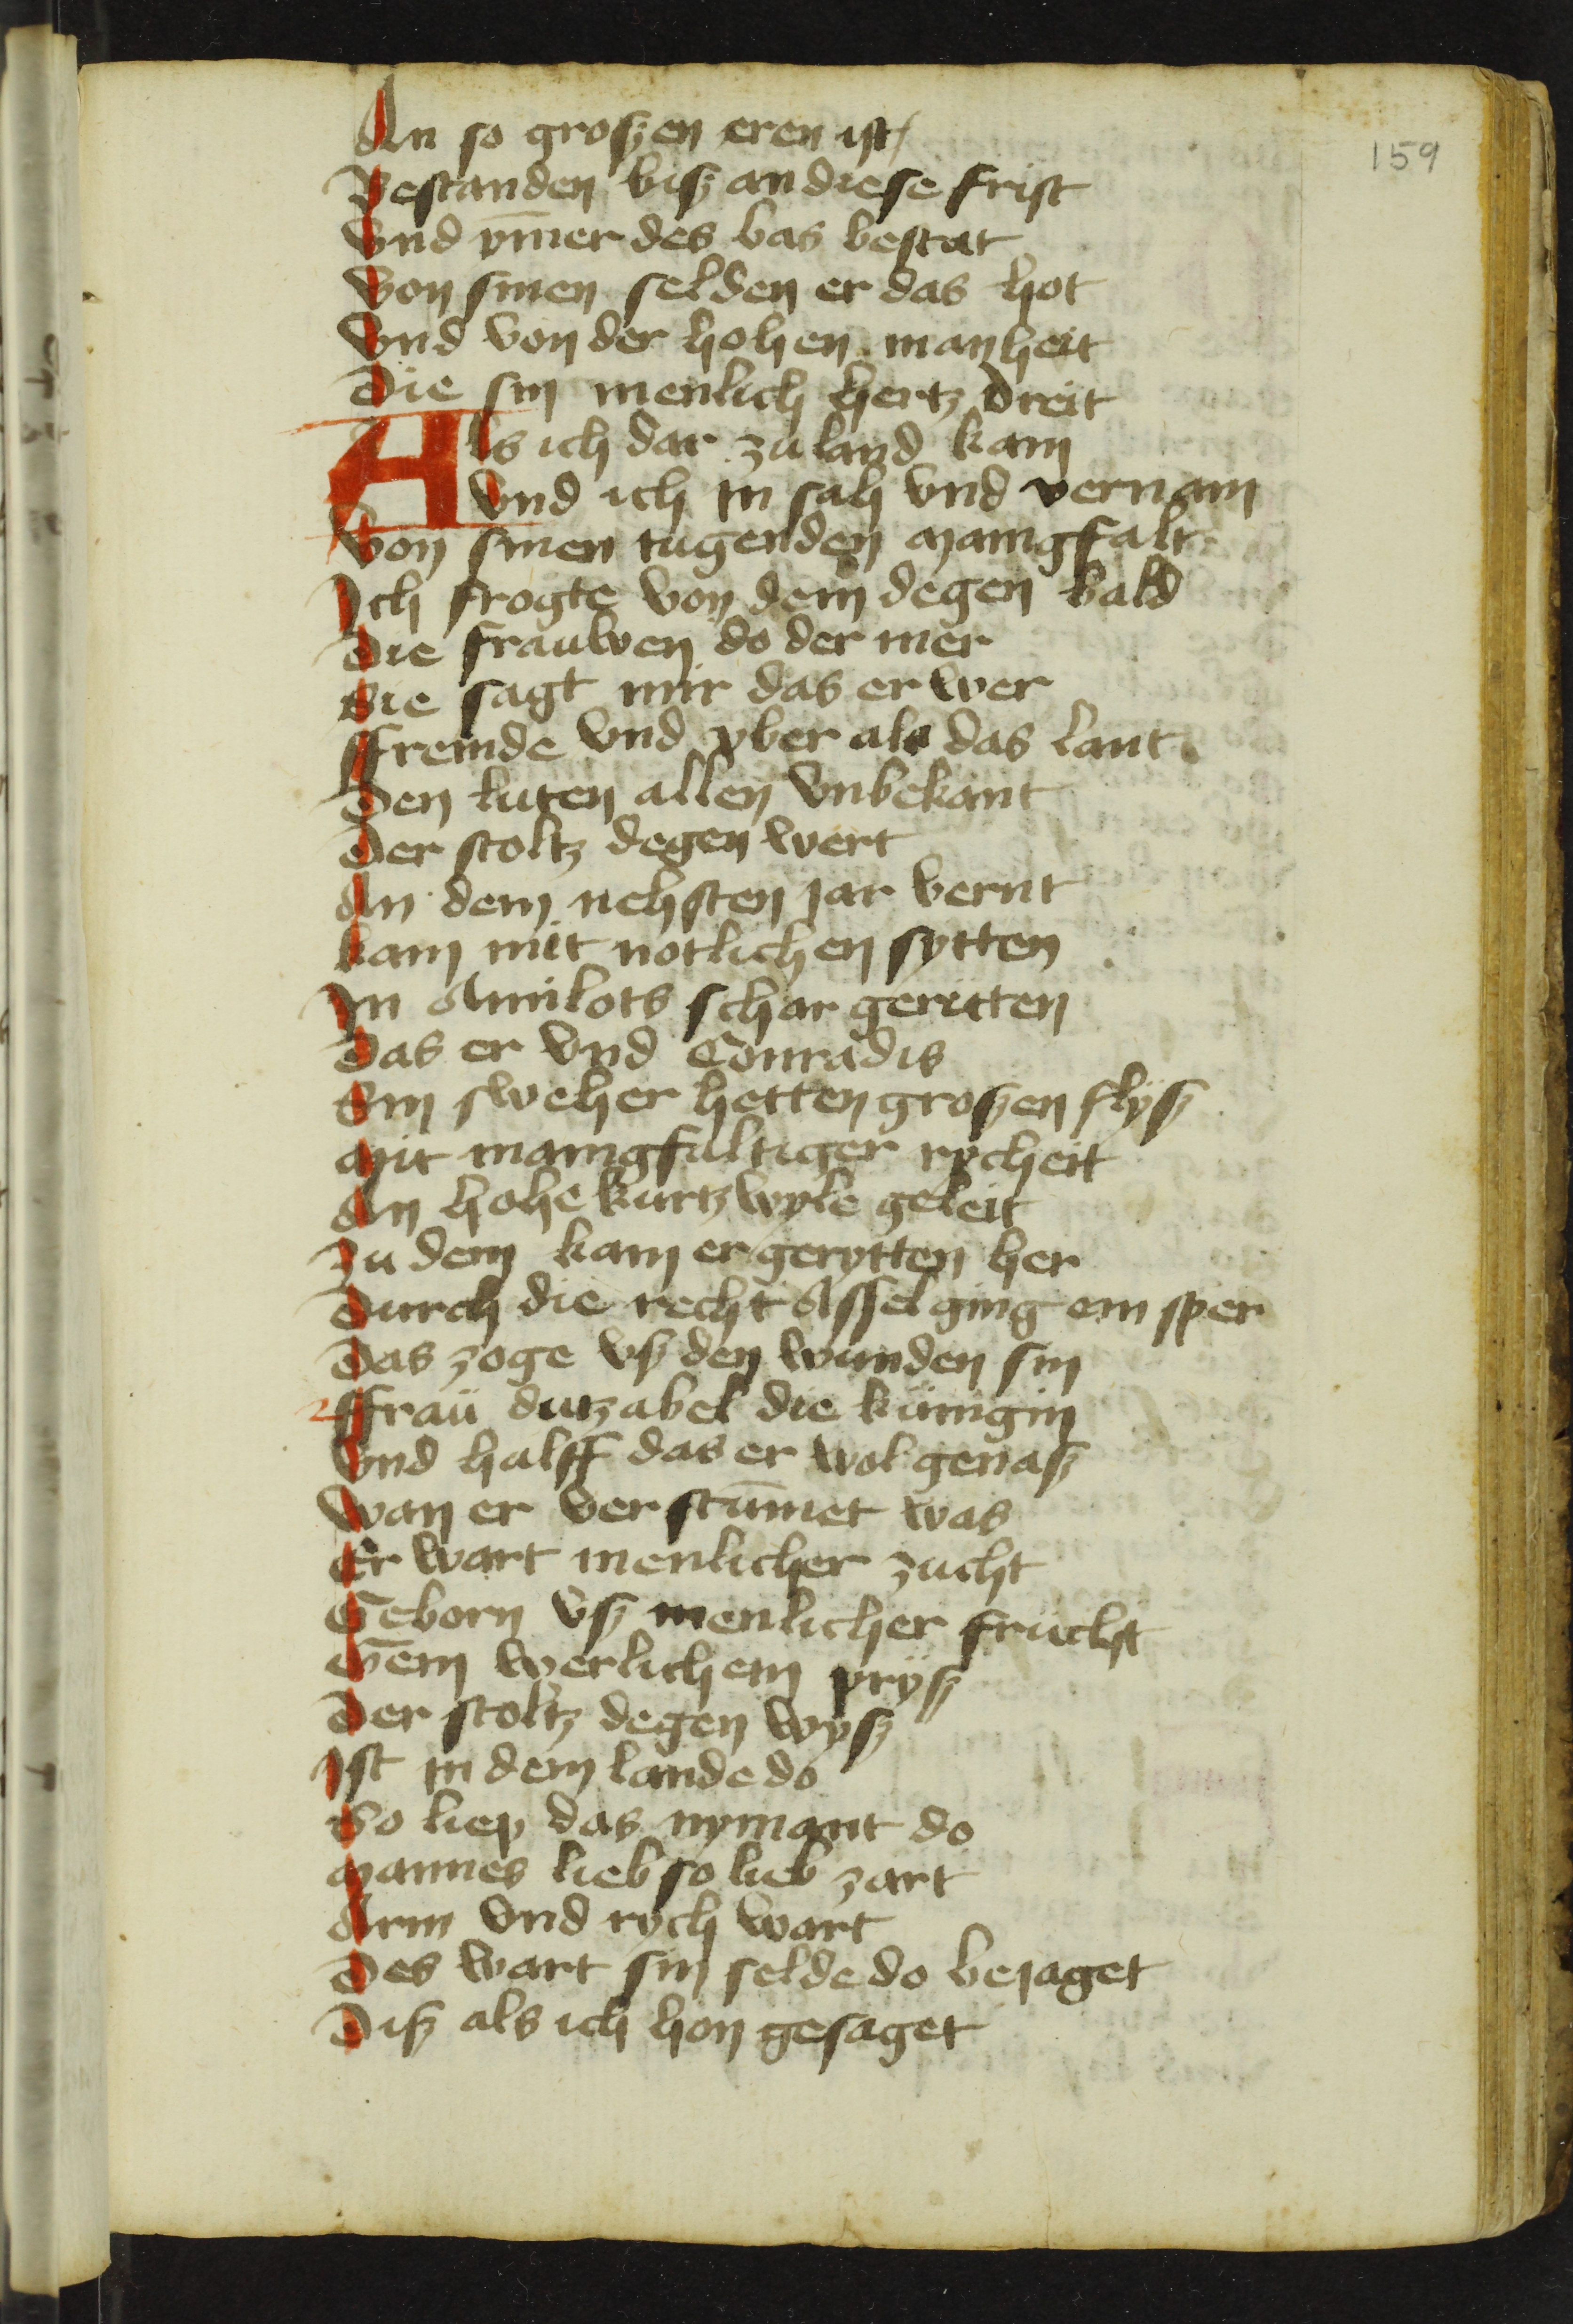 159
An so groszen eren ist/
Bestanden bisz an diese frist
Vnd ȳmer des bas bestat
Von sinen selden er das hot
Vnd von der hohen manheit
Die sin menlich hertz dreit
Als ich dar zu land kam
Vnd ich in sah vnd vernam
Von sinen tugenden manigfalt
Ich frogte von dem degen bald
Die frauwen do der mer
Sie sagt mir das er wer
Ffremde vnd yber als das lant
Den luten allen vnbekant
Der stoltz degen wert
An dem nehsten jar vernt
kam mit notlichen sytten
In Amilots schar geritten
Das er vnd Conradis
Sin sweher hetten groszen flysz
Mit manigfaltiger rycheit
An hohe kurtzwyle geleit
Zu dem kam er gerytten her
Durch die recht Assel ging ein sper
Das zoge vsz den wunden sin
Ffrau dutzabel die kunigin
Vnd halff das er wol genasz
Wan er verstūmet was
Er wart menlicher zucht
Geborn vsz menlicher frucht
Gein werlichem prysz
Der stoltz degen wysz
Ist in dem lande do
So liep das nymant do
Mannes lieb so lieb zart
Arm vnd rych wart
Des wart sin selde do bejaget
Disz als ich hon gesaget